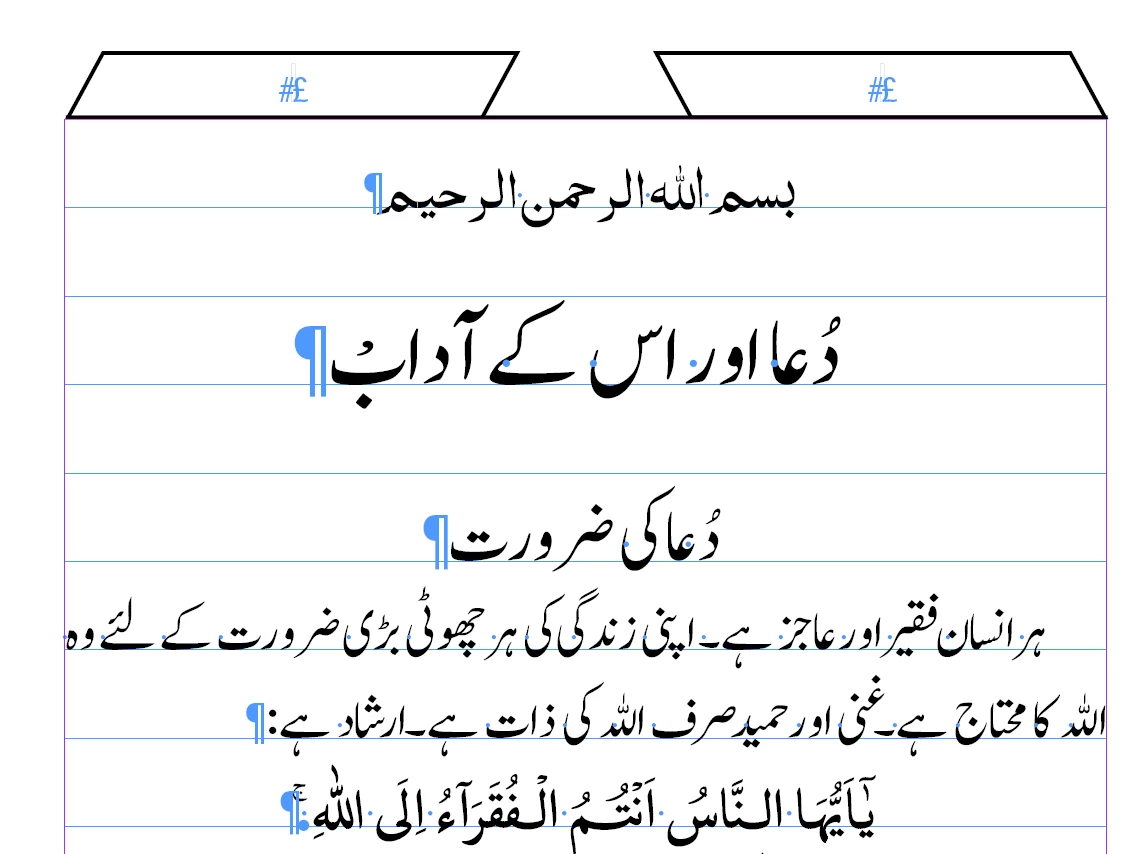 #£ #£
بسم الله الرحمن الرحیم
دُعا اور اس کے آدابْ
دُعا کی ضرورت
ہر انسان فقیر اور عاجز ہے۔ اپنی زندگی کی ہر چھوٹی بڑی ضرورت کے لئے وہ
اللہ کا محتاج ہے۔ غنی اور حمید صرف اللہ کی ذات ہے۔ ارشاد ہے:
یٰۤاَیُّہَا النَّاسُ اَنْتُمُ الْفُقَرَآءُ اِلَی اللّٰہِ ۚ